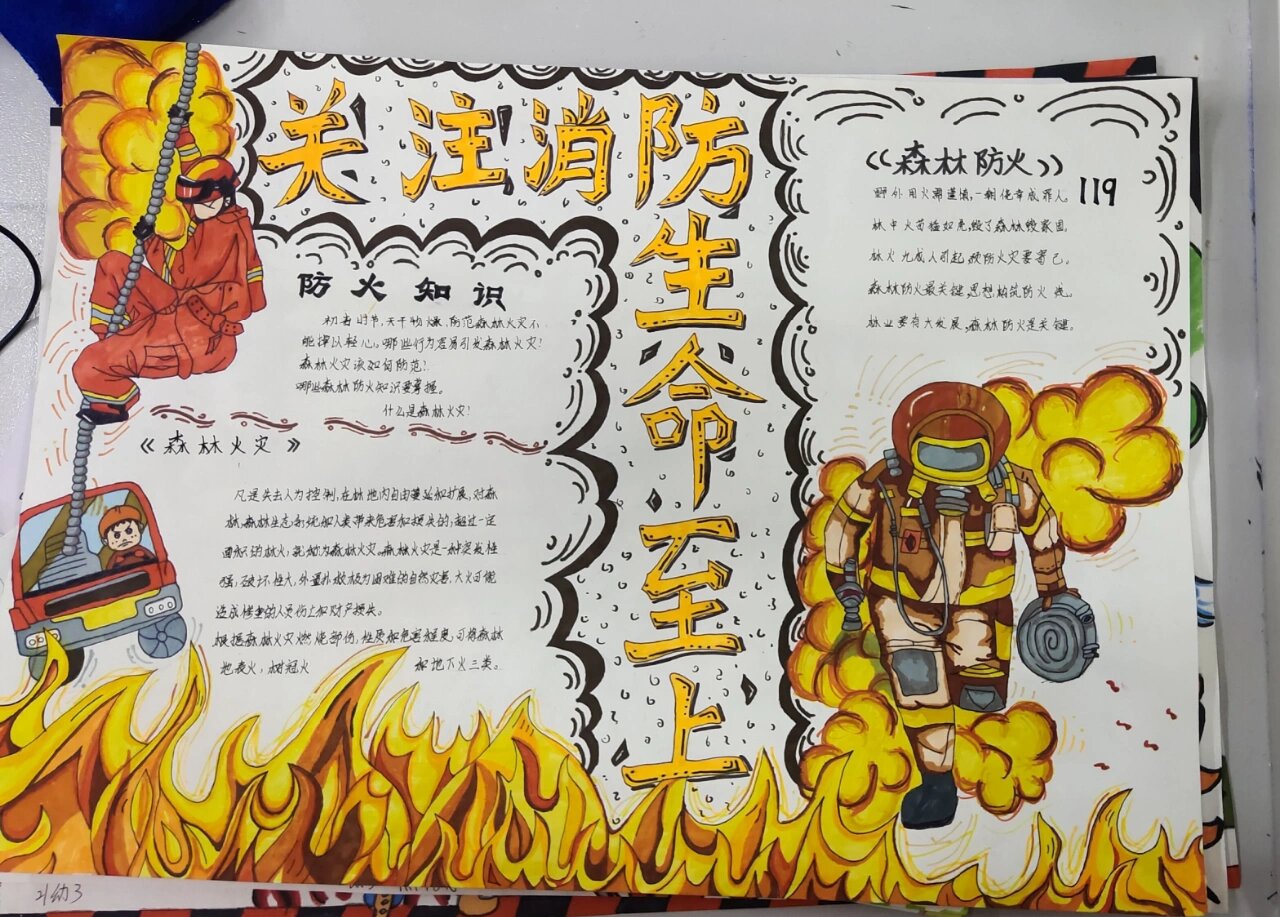 关注消防
生命至上
防火知识
初春时节,天干物燥,防范森林火灾不
能掉以轻心。哪些行为容易引发森林火灾?
森林火灾该如何防范?
哪些森林防火知识要掌握。
什么是森林火灾?
《森林火灾》
凡是失去人为控制,在林地内自由蔓延和扩展,对森
林,森林生态系统和人类带来危害和损失的,超过一定
面积的林火,就称为森林火灾。森林火灾是一种突发性
强,破坏性大,外置扑救极为困难的自然灾害,大火可能
造成惨重的人员伤亡和财产损失。
根据森林火灾燃烧部位,性质和危害程度,可将森林
地表火,树冠火 和地下火三类。
《森林防火》
119
野外用火需谨慎,一制侥幸成罪人。
林中火苗猛如虎,毁了森林毁家园。
林火九成人引起,预防火灾要害己。
森林防火最关键,思想构筑防火线。
林业要有大发展,森林防火是关键。
21幼3